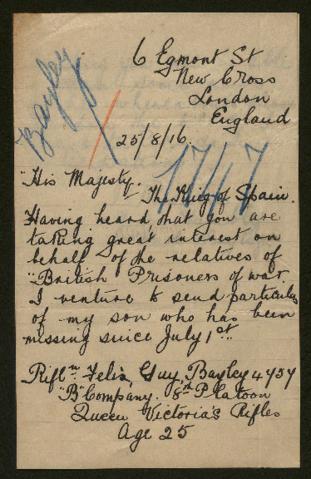 6 Egmont St
New Cross
London
England
Bayley
25/8/16.
1747
"His Majesty"
The King of Spain.
Having heard that you are
taking great interest on
behalf of the relatives of
"British Prisoners of war
I venture to send particulars
of my son who has been
missing since July 1st
Riflmn Felix, Guy, Bayley 4757
"B" Company. 8th Platoon
Queen Victoria's Rifles
Age 25